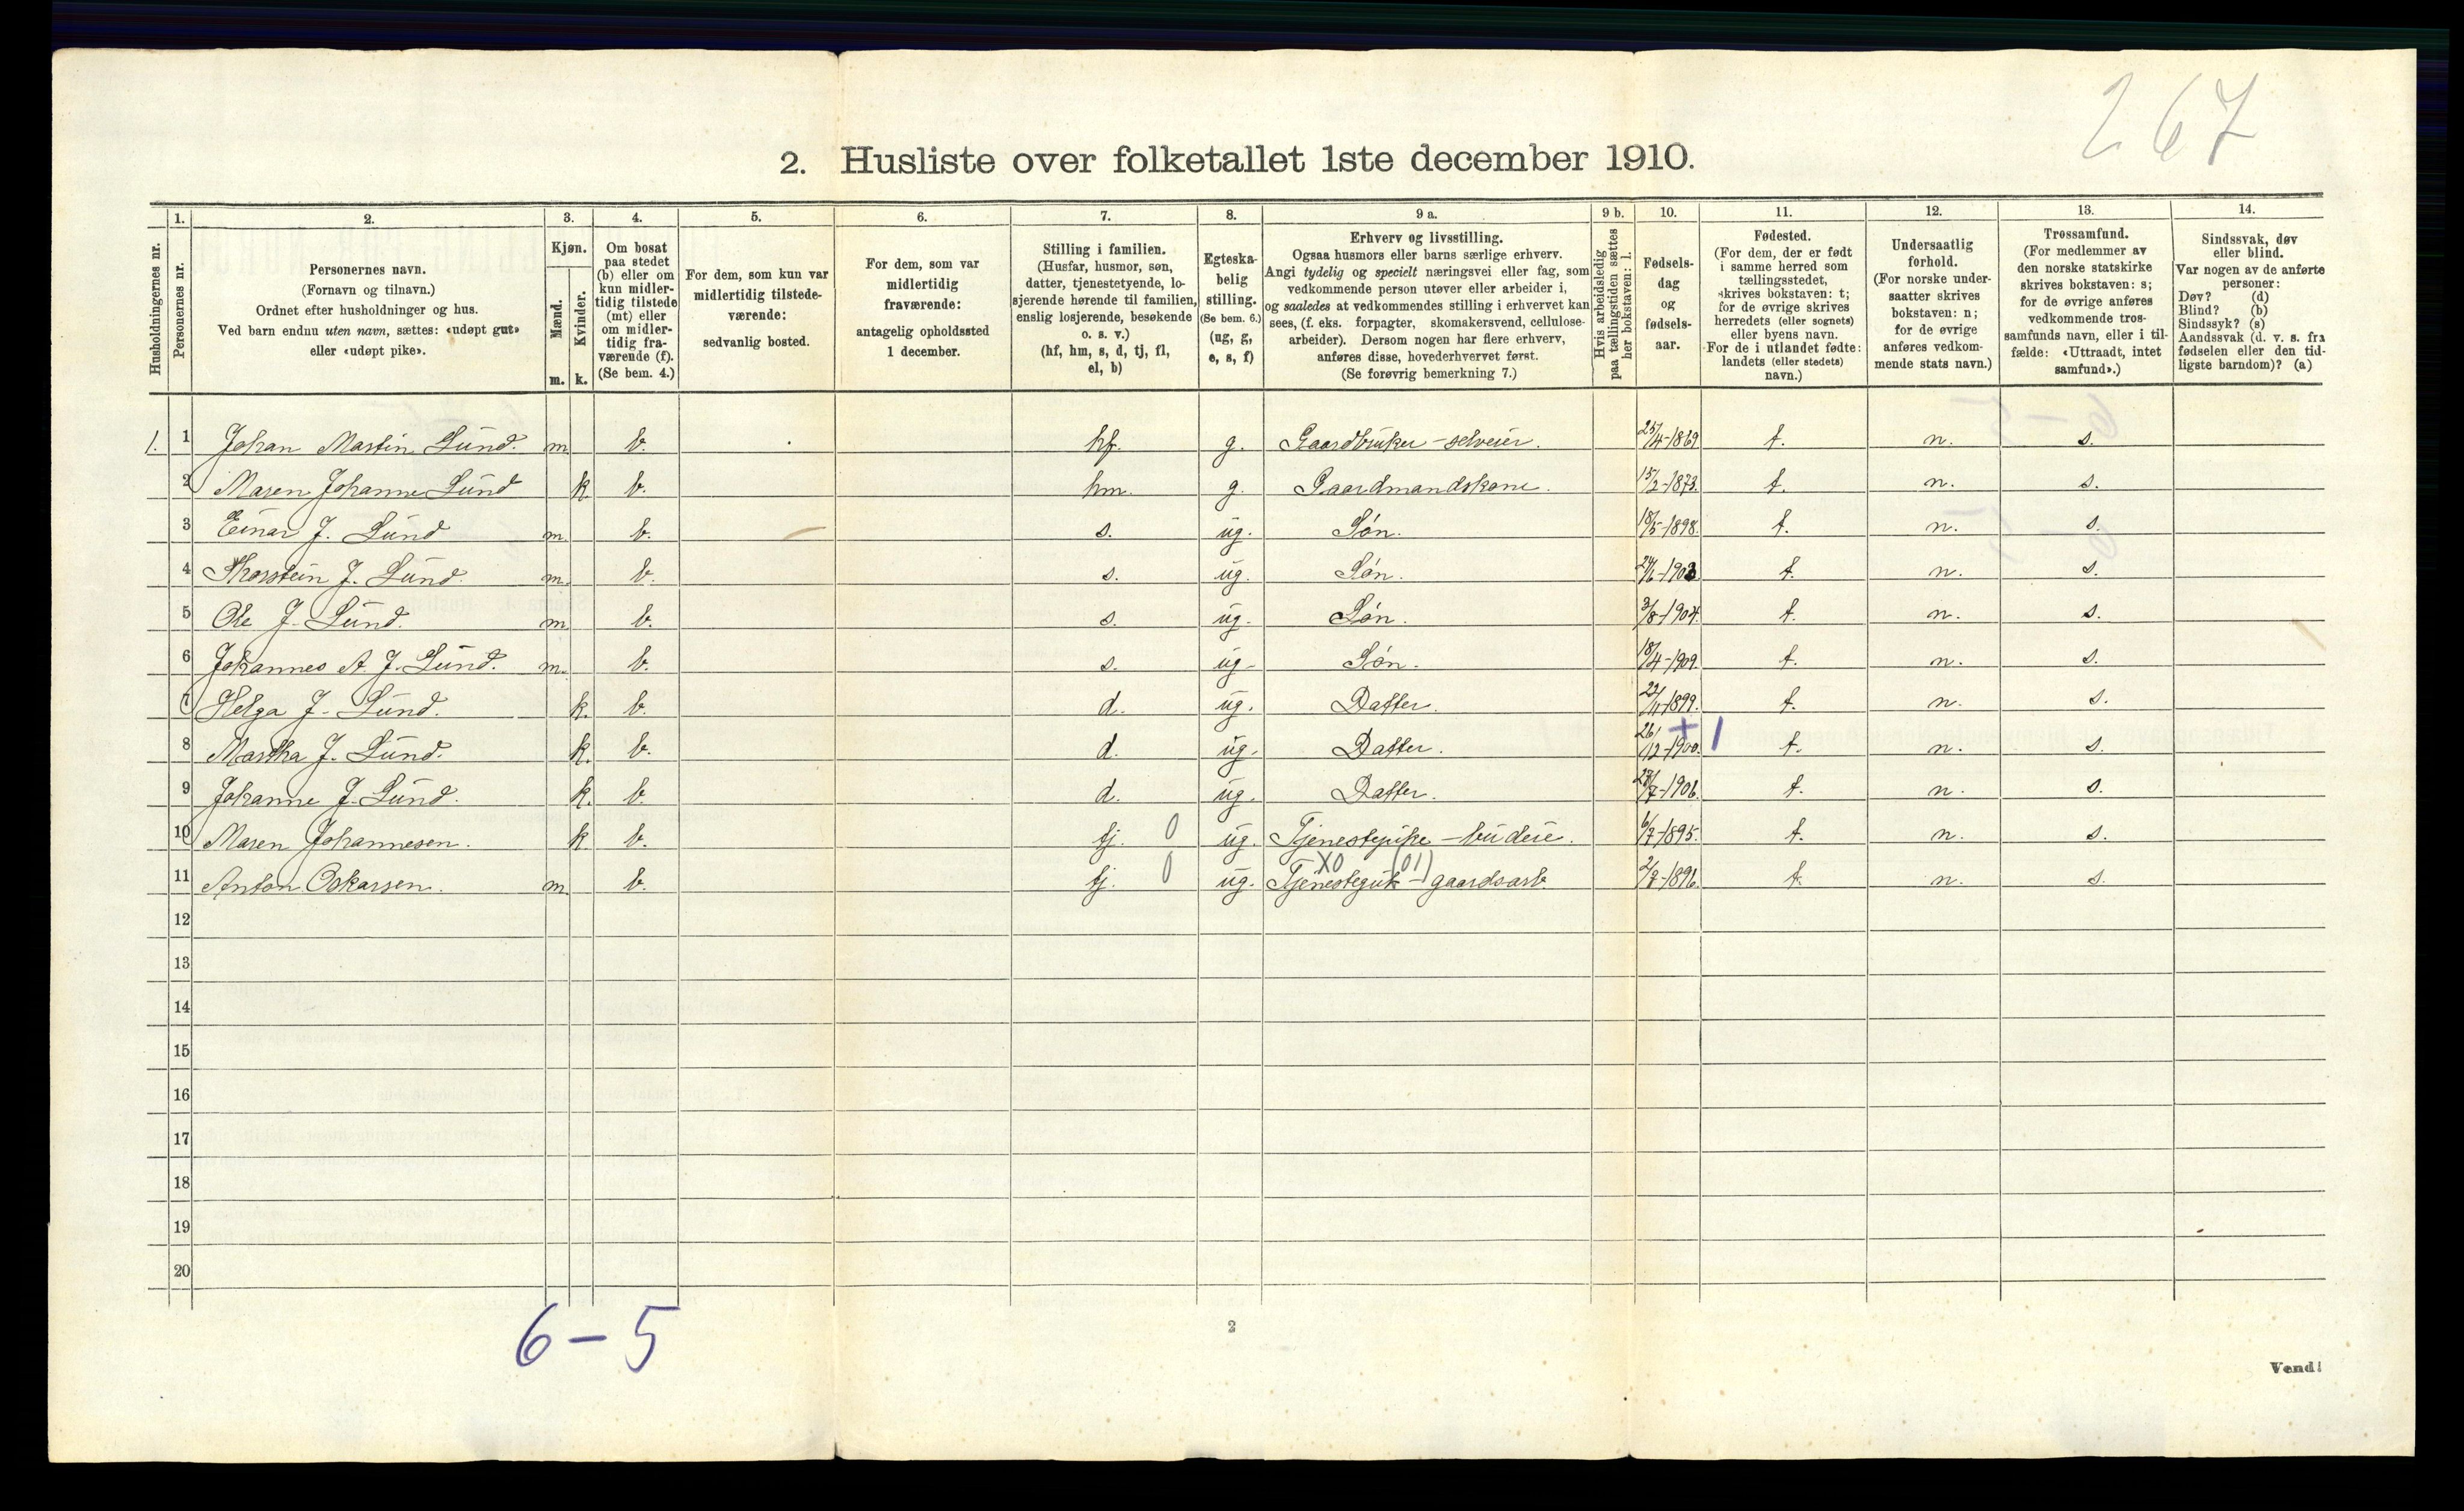 267
2. Husliste over folketallet 1ste december 1910.
Husholdningernes nr.
1.
Personernes nr.
2.
Personernes navn.
(Fornavn og tilnavn.)
Ordnet efter husholdninger og hus.
Ved barn endnu uten navn, sættes: «udøpt gut»
eller «udøpt pike».
3.
Kjøn.
Mænd.
m.
Kvinder.
k.
4.
Om bosat
paa stedet
(b) eller om
kun midler-
tidig tilstede
(mt) eller
om midler-
tidig fra-
værende (f).
(Se bem. 4.)
5.
For dem, som kun var
midlertidig tilstede-
værende:
sedvanlig bosted.
6.
For dem, som var
midlertidig
fraværende:
antagelig opholdssted
1 december.
7.
Stilling i familien.
(Husfar, husmor, søn,
datter, tjenestetyende, lo-
sjerende hørende til familien,
enslig losjerende, besøkende
o. s. v.)
(hf, hm, s, d, tj, fl,
el, b)
8.
Egteska-
belig
stilling.
(Se bem. 6.)
(ug, g,
e, s, f)
9 a.
Erhverv og livsstilling.
Ogsaa husmors eller barns særlige erhverv.
Angi tydelig og specielt næringsvei eller fag, som
vedkommende person utøver eller arbeider i,
og saaledes at vedkommendes stilling i erhvervet kan
sees, (f. eks. forpagter, skomakersvend, cellulose-
arbeider). Dersom nogen har flere erhverv,
anføres disse, hovederhvervet først.
(Se forøvrig bemerkning 7.)
9 b.
Hvis arbeidsledig
paa tællingstiden sættes
her bokstaven: l.
10.
Fødsels-
dag
og
fødsels-
aar.
11.
Fødested.
(For dem, der er født
i samme herred som
tællingsstedet,
skrives bokstaven: t;
for de øvrige skrives
herredets (eller sognets)
eller byens navn.
For de i utlandet fødte:
landets (eller stedets)
navn.)
12.
Undersaatlig
forhold.
(For norske under-
saatter skrives
bokstaven: n;
for de øvrige
anføres vedkom-
mende stats navn.)
13.
Trossamfund.
(For medlemmer av
den norske statskirke
skrives bokstaven: s;
for de øvrige anføres
vedkommende tros-
samfunds navn, eller i til-
fælde: «Uttraadt, intet
samfund».)
14.
Sindssvak, døv
eller blind.
Var nogen av de anførte
personer:
Døv? (d)
Blind? (b)
Sindssyk? (s)
Aandssvak (d. v. s. fra
fødselen eller den tid-
ligste barndom)? (a)
1. 1 Johan Martin Lund. m b. hf. g. Gaardbruker - selveier. 25/4-1869 t. n. s.
2 Maren Johanne Lund k b. hm. g. Gaardmandskone. 15/2-1873. t. n. s.
3 Einar J. Lund m b. s. ug. Søn. 18/5-1898. t. n. s.
4 Thorstein J. Lund. m. b. s. ug. Søn. 24/6-1903 t. n. s.
5 Ole J. Lund. m b. s. ug. Søn. 3/8-1904. t. n. s.
6 Johannes A J. Lund. m. b. s. ug. Søn. 18/4-1909. t. n. s.
7 Helga J. Lund. k. b. d. ug. Datter. 22/11-1899. t. n. s.
8 Martha J. Lund. k. b. d. ug. Datter. 26/12-1900. + 1 t. n. s.
9 Johanne J. Lund. k. b. d. ug. Datter. 1906. t. n. s.
10 Maren Johannesen. k b. tj. 0 ug. Tjenestepike - budeie. 6/7-1895. t. n. s.
X0 (01)
11 Anton Oskarsen. m. b. tj. 0 ug. Tjenestegut - gaardsarb. 1896. t. n. s.
12
13
14
15
16
17
18
19
20
6-5
2
Vend!